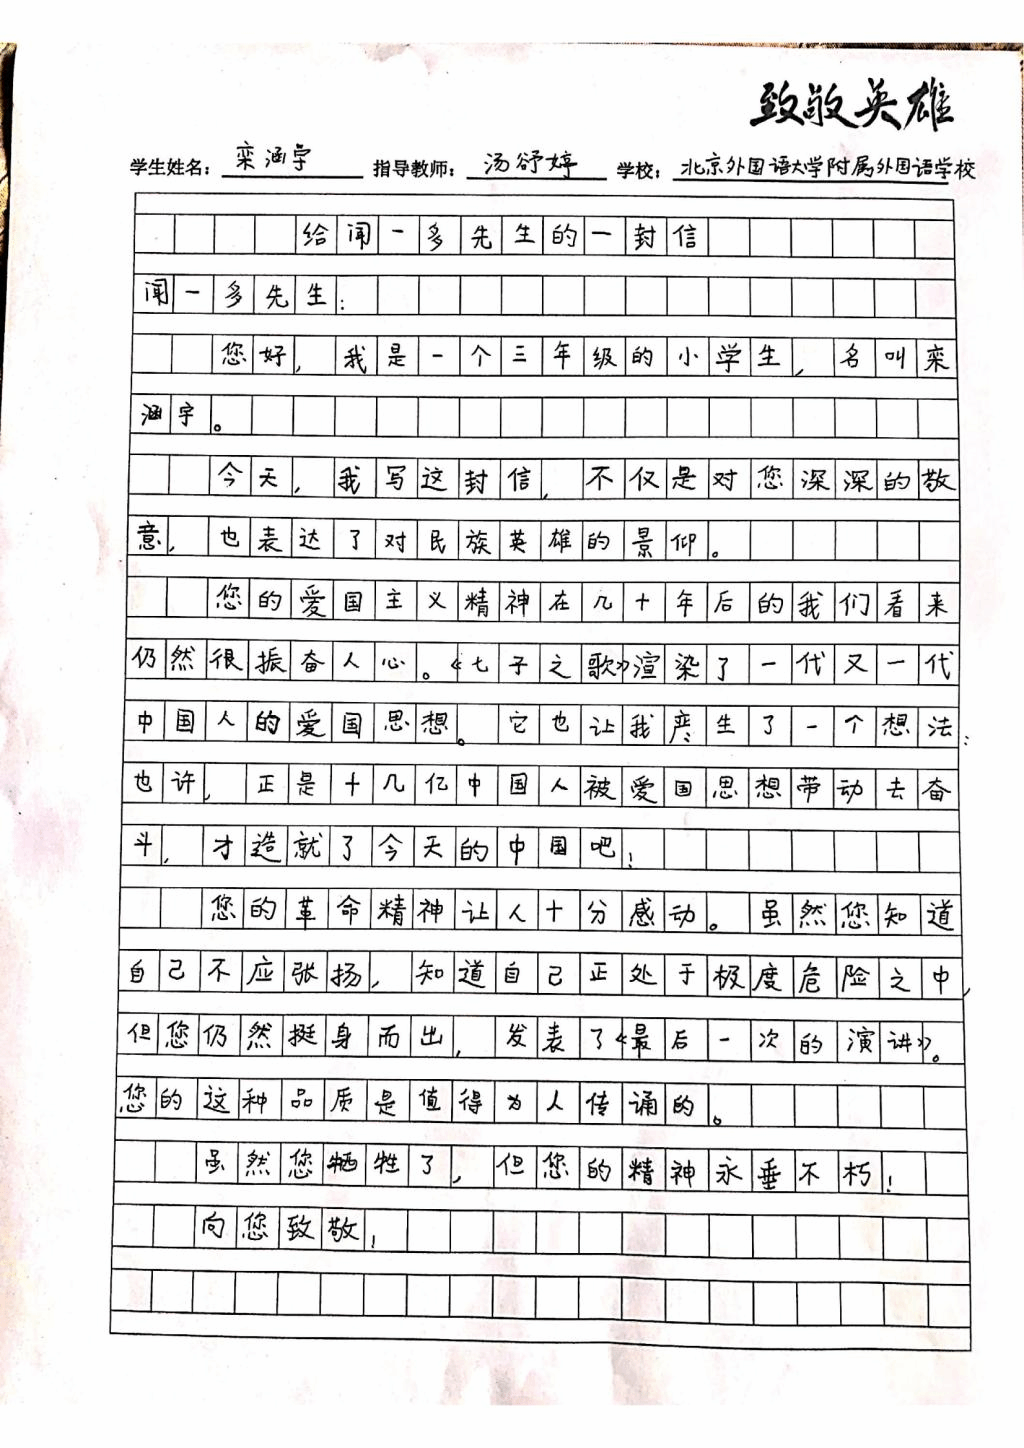 致敬英雄
学生姓名：栾涵宇 指导教师：汤舒婷 学校：北京外国语大学附属外国语学校
给闻一多先生的一封信
闻一多先生：
您好，我是一个三年级的小学生，名叫栾
涵宇。
今天，我写这封信，不仅是对您深深的敬
意，也表达了对民族英雄的景仰。
您的爱国主义精神在几十年后的我们看来
仍然很振奋人心。《七子之歌》渲染了一代又一代
中国人的爱国思想。它也让我产生了一个想法：
也许，正是十几亿中国人被爱国思想带动去奋
斗，才造就了今天的中国吧！
您的革命精神让人十分感动。虽然您知道
自己不应张扬，知道自己正处于极度危险之中，
但您仍然挺身而出，发表了《最后一次的演讲》。
您的这种品质是值得为人传诵的。
虽然您牺牲了，但您的精神永垂不朽！
向您致敬！